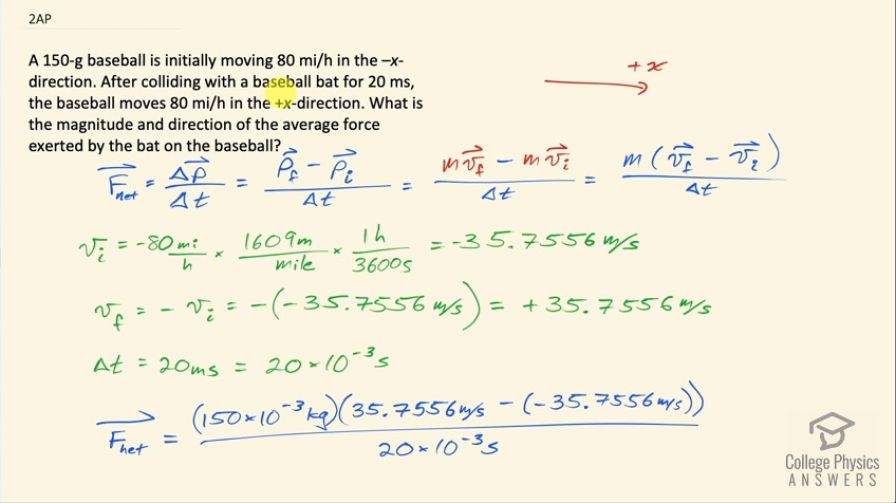 2AP
A 150-g baseball is initially moving 80 mi/h in the –x-
direction. After colliding with a baseball bat for 20 ms,
the baseball moves 80 mi/h in the +x-direction. What is
the magnitude and direction of the average force
exerted by the bat on the baseball?
+x
F⃗net = Δp⃗/Δt = (p⃗f − p⃗i)/Δt = (mv⃗f − mv⃗i)/Δt = m(v⃗f − v⃗i)/Δt
vi = -80 mi/h × 1609m/mile × 1h/3600s = -35.7556 m/s
vf = - vi = -(-35.7556 m/s) = +35.7556 m/s
Δt = 20ms = 20×10⁻³s
F⃗net = (150×10⁻³kg)(35.7556m/s − (−35.7556m/s))/20×10⁻³s
College Physics
ANSWERS